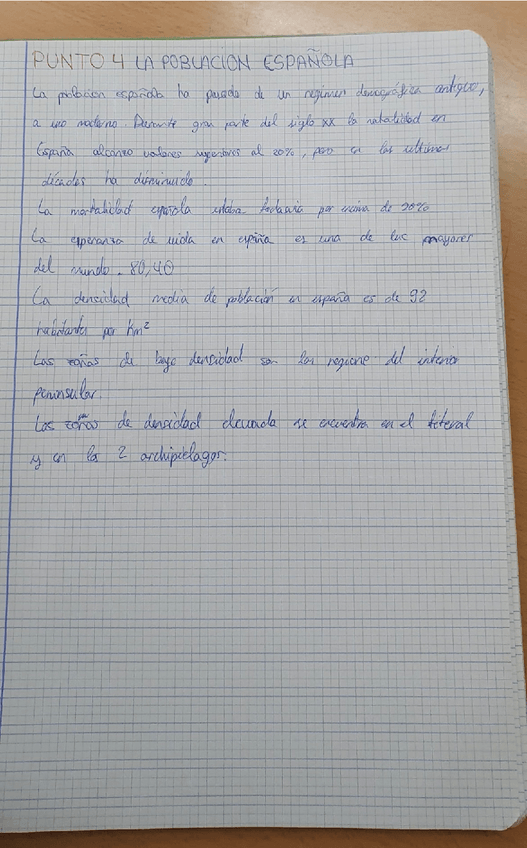 PUNTO 4 LA POBLACION ESPAÑOLA
La poblacion española ha pasado de un regimen demográfico antiguo,
a uno moderno. Durante gran parte del siglo XX la natalidad en
España alcanzo valores superiores al 20%, pero en las ultimas
décadas ha disminuido.
La mortalidad española estaba todavia por encima de 20%
La esperanza de vida en españa es una de las mayores
del mundo. 80,40
La densidad media de población en españa es de 92
habitantes por Km²
Las zoñas de baja densidad son las regione del interior
peninsular.
Las zoñas de densidad elevada se encuentra en el literal
y en la 2 archipielagos.